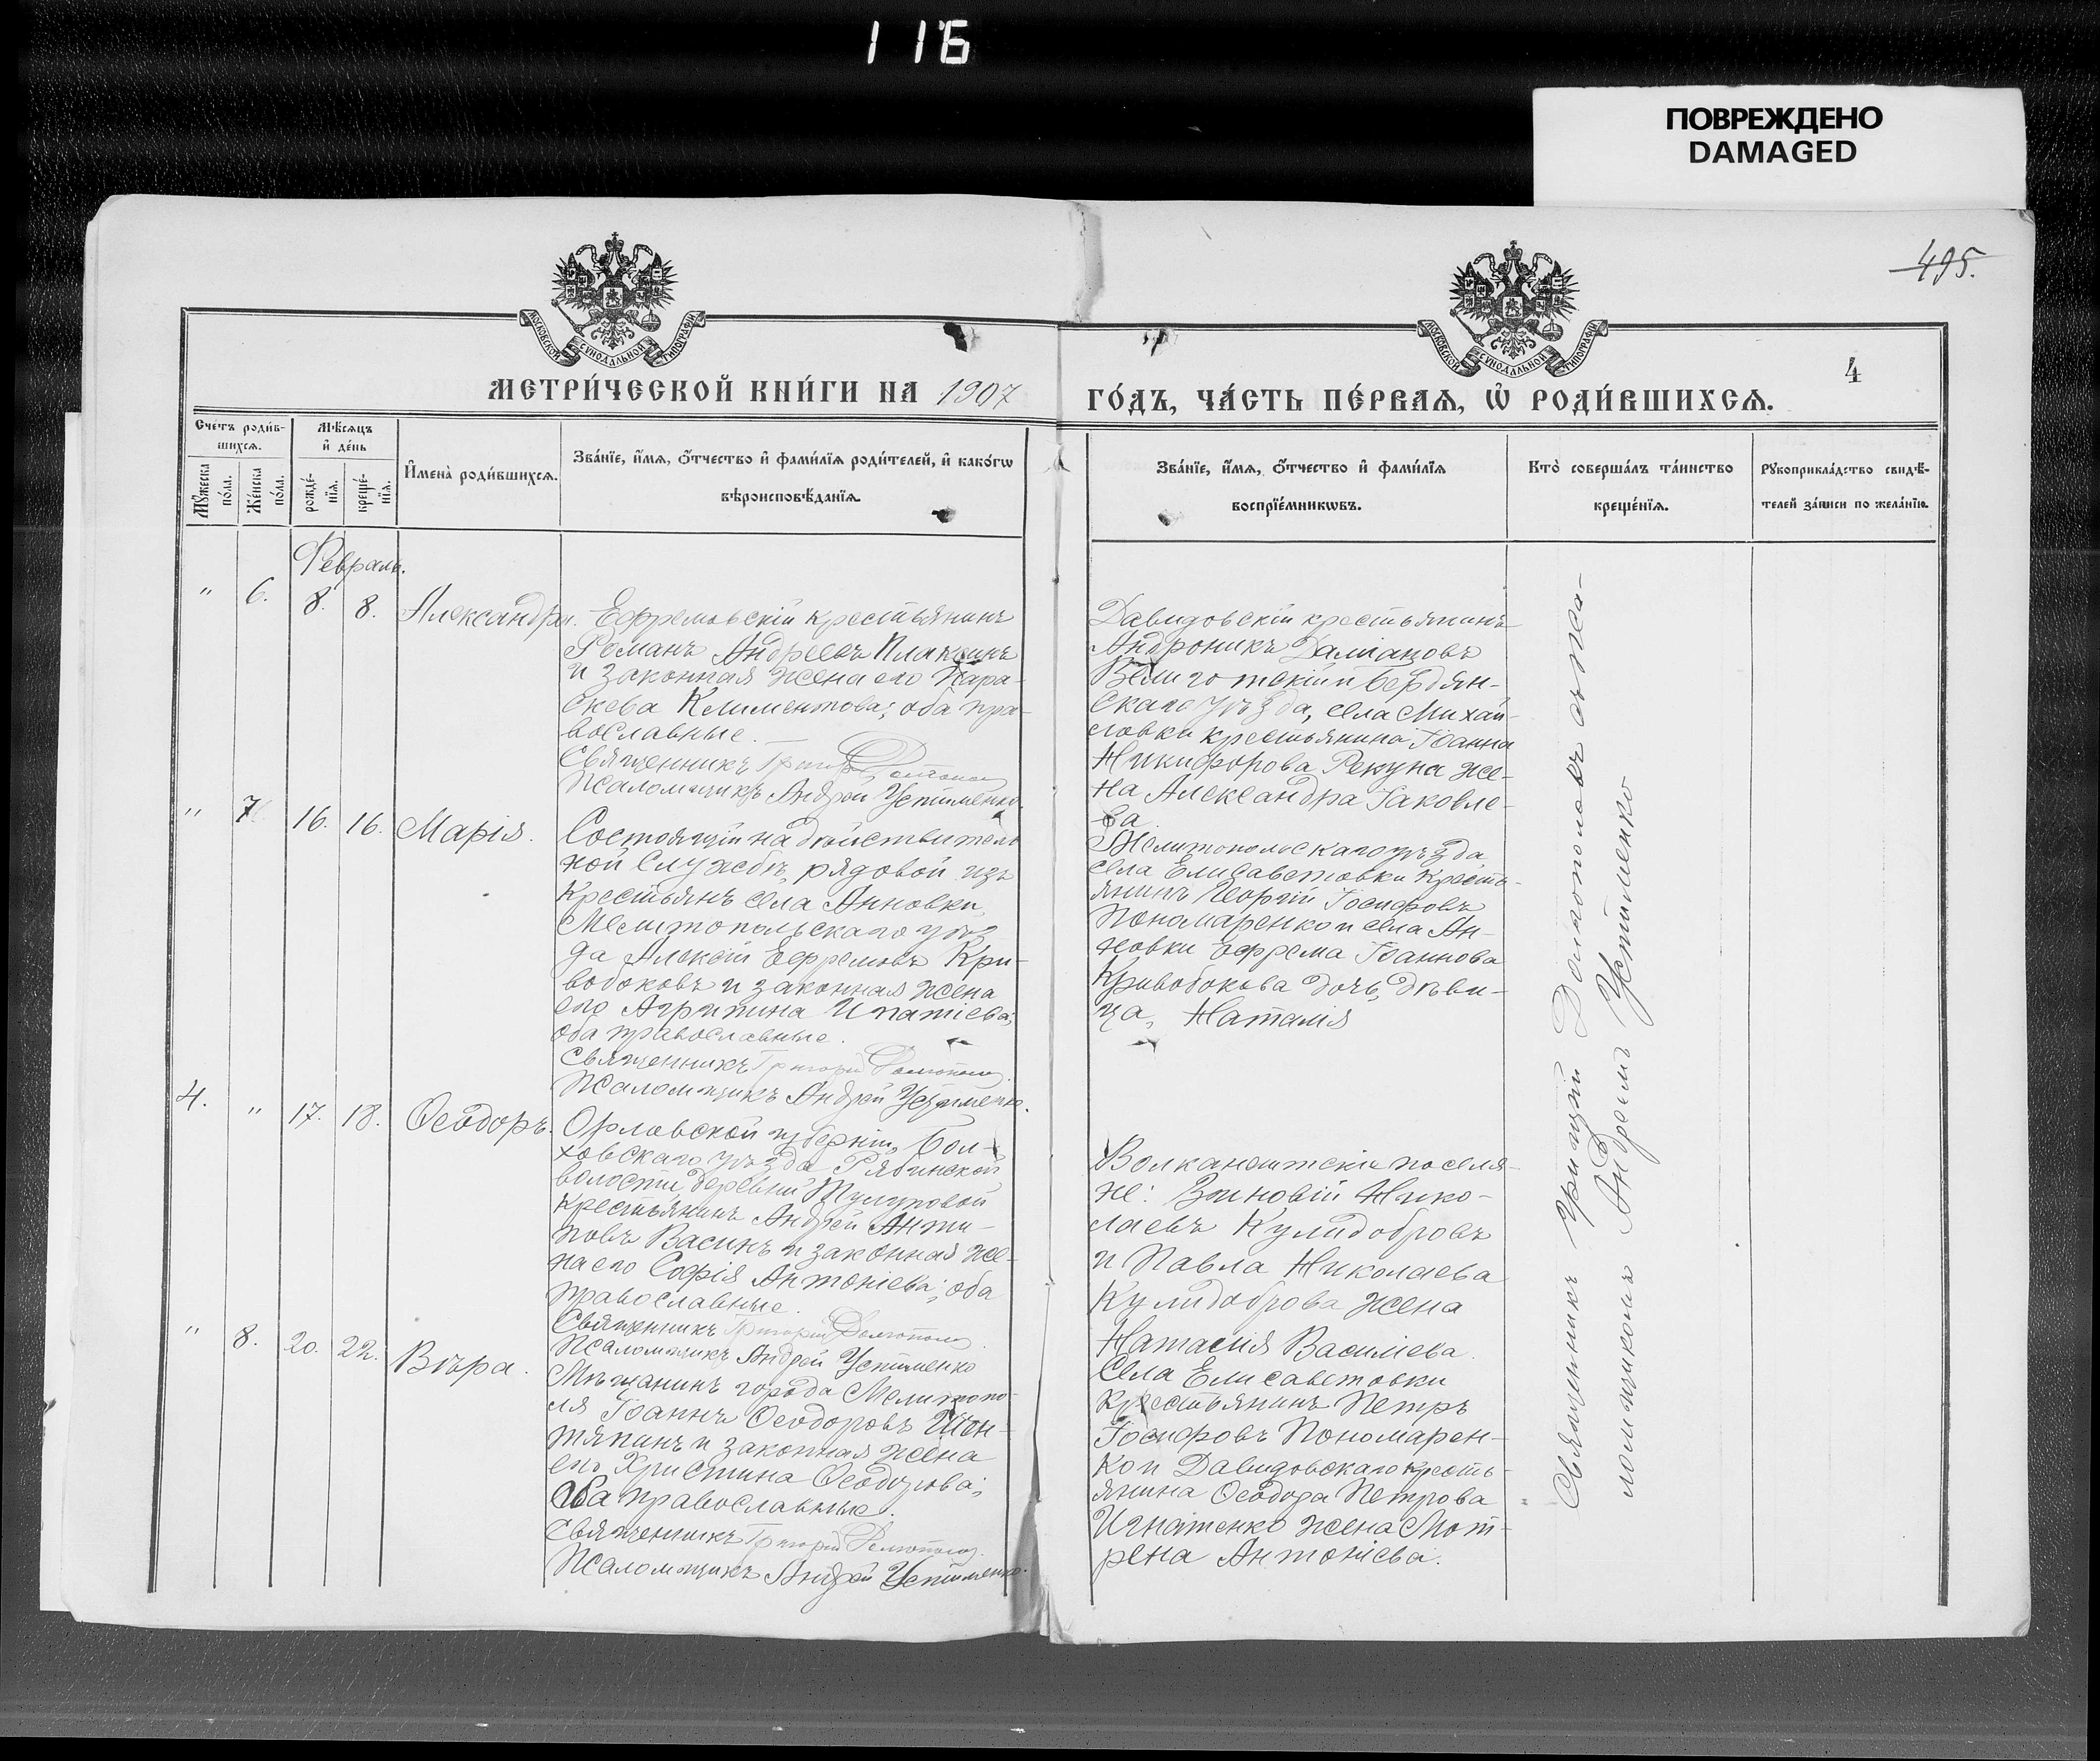 116
ПОВРЕЖДЕНО
DAMAGED
495.
МОСКОВСКОЙ СѴНОДАЛЬНОЙ ТИПОГРАФІИ
МОСКОВСКОЙ СѴНОДАЛЬНОЙ ТИПОГРАФІИ
4
МЕТРИ́ЧЕСКОЙ КНИ́ГИ НА 1907
ГО́ДЪ, ЧА́СТЬ ПЕ́РВАѦ, Ѽ РОДИ́ВШИХСѦ.
Счетъ роди́в-
шихсѧ.
Мѣ́сѧцъ
и҆ де́нь
Мꙋ́жеска
по́ла.
Же́нска
по́ла.
рожде́-
нїѧ.
креще́-
нїѧ.
И҆мена̀ роди́вшихсѧ.
Зва́нїе, и҆́мѧ, ѻ҆́тчество и҆ фами́лїѧ роди́телей, и҆ како́гѡ
вѣроисповѣ́данїѧ.
Зва́нїе, и҆́мѧ, ѻ҆́тчество и҆ фами́лїѧ
воспрїе́мникѡвъ.
Кто̀ соверша́лъ та́инство
креще́нїѧ.
Рꙋкоприкла́дство свидѣ́-
телей за́писи по жела́нїю.
Февраль.
" 6. 8. 8. Александра.
Ефремовскій крестьянинъ
Романъ Андреевъ Плаксинъ
и законная жена его Пара-
скева Климентова; оба пра-
вославные.
Священникъ Григорій Долгополов
Псаломщикъ Андрей Устименко.
Давидовскій крестьянинъ
Андроникъ Даміановъ
и Бердян-
скаго уѣзда, села Михай-
ловки крестьянина Іоанна
Никифорова Рекуна же-
на Александра Іаковле-
ва.
" 7. 16. 16. Марія.
Состоящій на дѣйствитель
ной службѣ, рядовой изъ
крестьянъ села Анновки,
Мелитопольскаго уѣз
да Алексій Ефремовъ Кри-
вобоковъ и законная жена
его Агрипина Ипатіева;
оба православные.
Священникъ Григорій Долгополов.
Псаломщикъ Андрей Устименко.
Мелитопольскаго уѣзда
села Елисаветовки кресть-
янинъ Георгій Іосифовъ
Пономаренко и села Ан-
новки Ефрема Іоаннова
Кривобокова дочь, дѣви-
ца, Наталія
4. " 17. 18. Ѳеодоръ.
Орловской губерніи, Бол-
ховскаго уѣзда Рябинской
волости деревни Тулуповой
крестьянинъ Андрей Анти-
повъ Васинъ и законная же-
на его Софія Антоніева; оба
православные.
Священникъ Григорій Долгополов
Псаломщикъ Андрей Устименко
Волканештскіе поселя-
не: Зиновій Нико-
лаевъ Кулидобровъ
и Павла Николаева
Кулидоброва жена
Наталія Василіева.
" 8. 20. 22. Вѣра.
Мѣщанинъ города Мелитопо-
ля Іоаннъ Ѳеодоровъ Шен-
тяпинъ и законная жена
его Христина Ѳеодорова;
оба православные.
Священникъ Григорій Долгополов.
Псаломщикъ Андрей Устименко.
Села Елисаветовки
крестьянинъ Петръ
Іосифовъ Пономарен-
ко и Давидовскаго кресть-
янина Ѳеодора Петрова
Игнатенко жена Мот-
рена Антоніева.
Священникъ Григорій Долгополовъ съ пса-
ломщикомъ Андреемъ Устименко